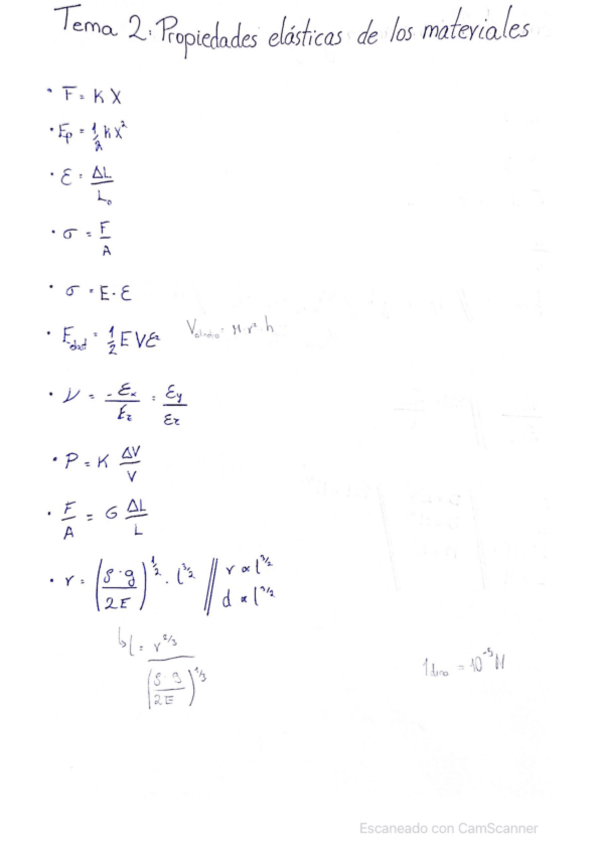 Tema 2: Propiedades elásticas de los materiales
• F = K X
• Ep = 1/2 K X²
• ε = ΔL / L₀
• σ = F / A
• σ = E · ε
• E = 1/2 E V ε² V = π · r² · h
• ν = -εx / εz = εy / εz
• P = K ΔV / V
• F / A = G ΔL / L
• r = (ρ · g / 2E)^1/2 · l^3/2 // r ∝ l^3/2
d ∝ l^3/2
↳ l = r^2/3 / (ρ · g / 2E)^1/3
1 dina = 10⁻⁵ N
Escaneado con CamScanner